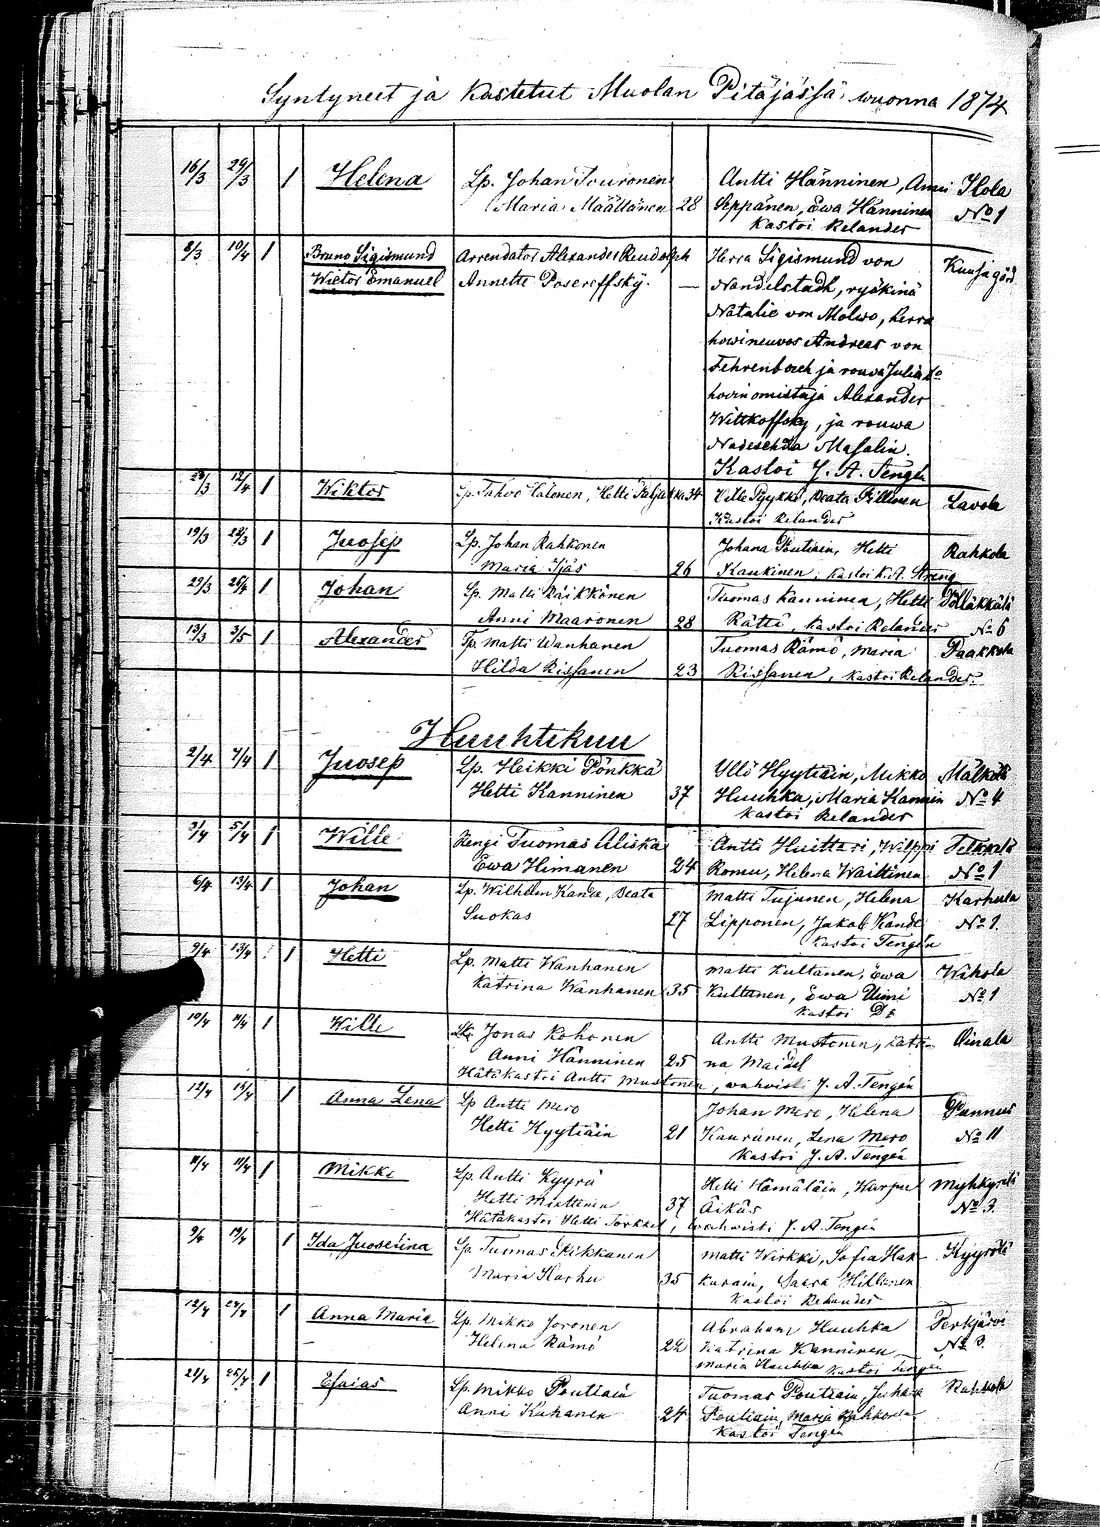 Syntyneet ja Kastetut Muolan Pitäjässä wuonna 1874
16/3 29/3 1 Helena Lp. Johan Touronen Antti Hänninen, Anni Ilola
Maria Määttänen 28 Seppänen, Ewa Hänninen No 1
Kastoi Relander
8/3 10/4 1 Bruno Sigismund Arrendator Alexander Rudolph Herra Sigismund von Kuusa gård
Wictor Emanuel Annette Posereffsky. — Nandelstadh, ryökinä
Natalie von Molwo, herra
howineuwos Andreas von
Fehrenbach ja rouwa Julia
howinomistaja Alexander
Wittkoffsky, ja rouwa
Nadeschda Masalin.
Kastoi J. A. Tengén
23/3 12/4 1 Wiktor Lp. Pahvo Halonen, Hetti 34 Wille Pyykkö, Beata Pillinen Lavola
Kastoi Relander
19/3 22/3 1 Juosep Lp. Johan Rahkonen Johana Poutiain, Hetti Rahkola
Maria Ijäs 26 Kaukinen, Kastoi K. A. Streng
29/3 26/4 1 Johan Lp. Matti Räikkönen Tuomas Kanninen, Hetti Pölläkkälä
Anni Maaronen 28 Rätti, Kastoi Relander No 6
13/3 3/5 1 Alexander Tp. Matti Wanhanen Tuomas Rämö, Maria Paakkola
Hilda Rissanen 23 Rissanen, Kastoi Relander.
Huuhtikuu
2/4 7/4 1 Juosep Lp. Heikki Pönkkä Ulla Hyytiäin, Mikko Mälkölä
Hetti Kanninen 37 Huuhka, Maria Kannin No 4
Kastoi Relander
3/4 5/4 1 Wille Rengi Tuomas Aliska Antti Huittari, Wilppi Telkkälä
Ewa Himanen 24 Romu, Helena Waittinen No 1
6/4 13/4 1 Johan Lp. Wilhelm Kande, Beata Matti Tujunen, Helena Karhula
Suokas 27 Lipponen, Jakob Kande No 1.
Kastoi Tengén
9/4 13/4 1 Hetti Lp. Matti Wanhanen Matti Kultanen, Ewa Wihola
Katrina Wanhanen 35 Kultanen, Ewa Uimi No 1
Kastoi Do
10/4 11/4 1 Wille Jonas Kohonen Antti Mustonen, Katri- Oinala
Anni Hänninen 25 na Maidel
Hätäkastoi Antti Mustonen, wahwisti J. A. Tengén
12/4 13/4 1 Anna Lena Lp Antti Mero Johan Mero, Helena Pannus
Hetti Hyytiäin 21 Kauranen, Lena Mero No 11
Kastoi J. A. Tengén
11/4 11/4 1 Mikki Lp. Antti Kyyrä Hetti Hämäläin, Warpu Myhkyrilä
Hetti Miettinen 37 Äikäs No 3.
Hätäkastoi Hetti Torkkel, wahwisti J. A. Tengén
9/4 19/4 1 Ida Juosefina Lp. Tuomas Pikkanen Matti Wirkki, Sofia Hak- Kyyrölä
Maria Karhu 35 karain, Saara Hikkanen
Kastoi Relander
12/4 24/4 1 Anna Maria Lp. Mikko Joronen Abraham Huuhka Perkjärvi
Helena Rämö 22 Katrina Kanninen No 3.
Maria Huuhka Kastoi Tengén
21/4 26/4 1 Esaias Lp. Mikko Poutiain Tuomas Poutiain, Juhana Rahkola
Anni Kuhanen 24 Poutiain, Maria Rahkonen
Kastoi Tengén